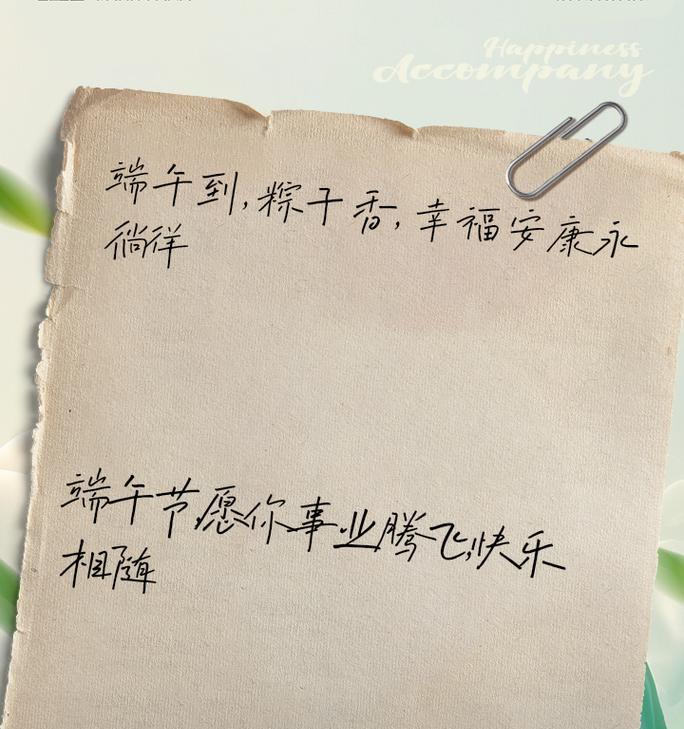 Happiness
Accompany
端午到,粽子香,幸福安康永
徜徉
端午节,愿你事业腾飞,快乐
相随